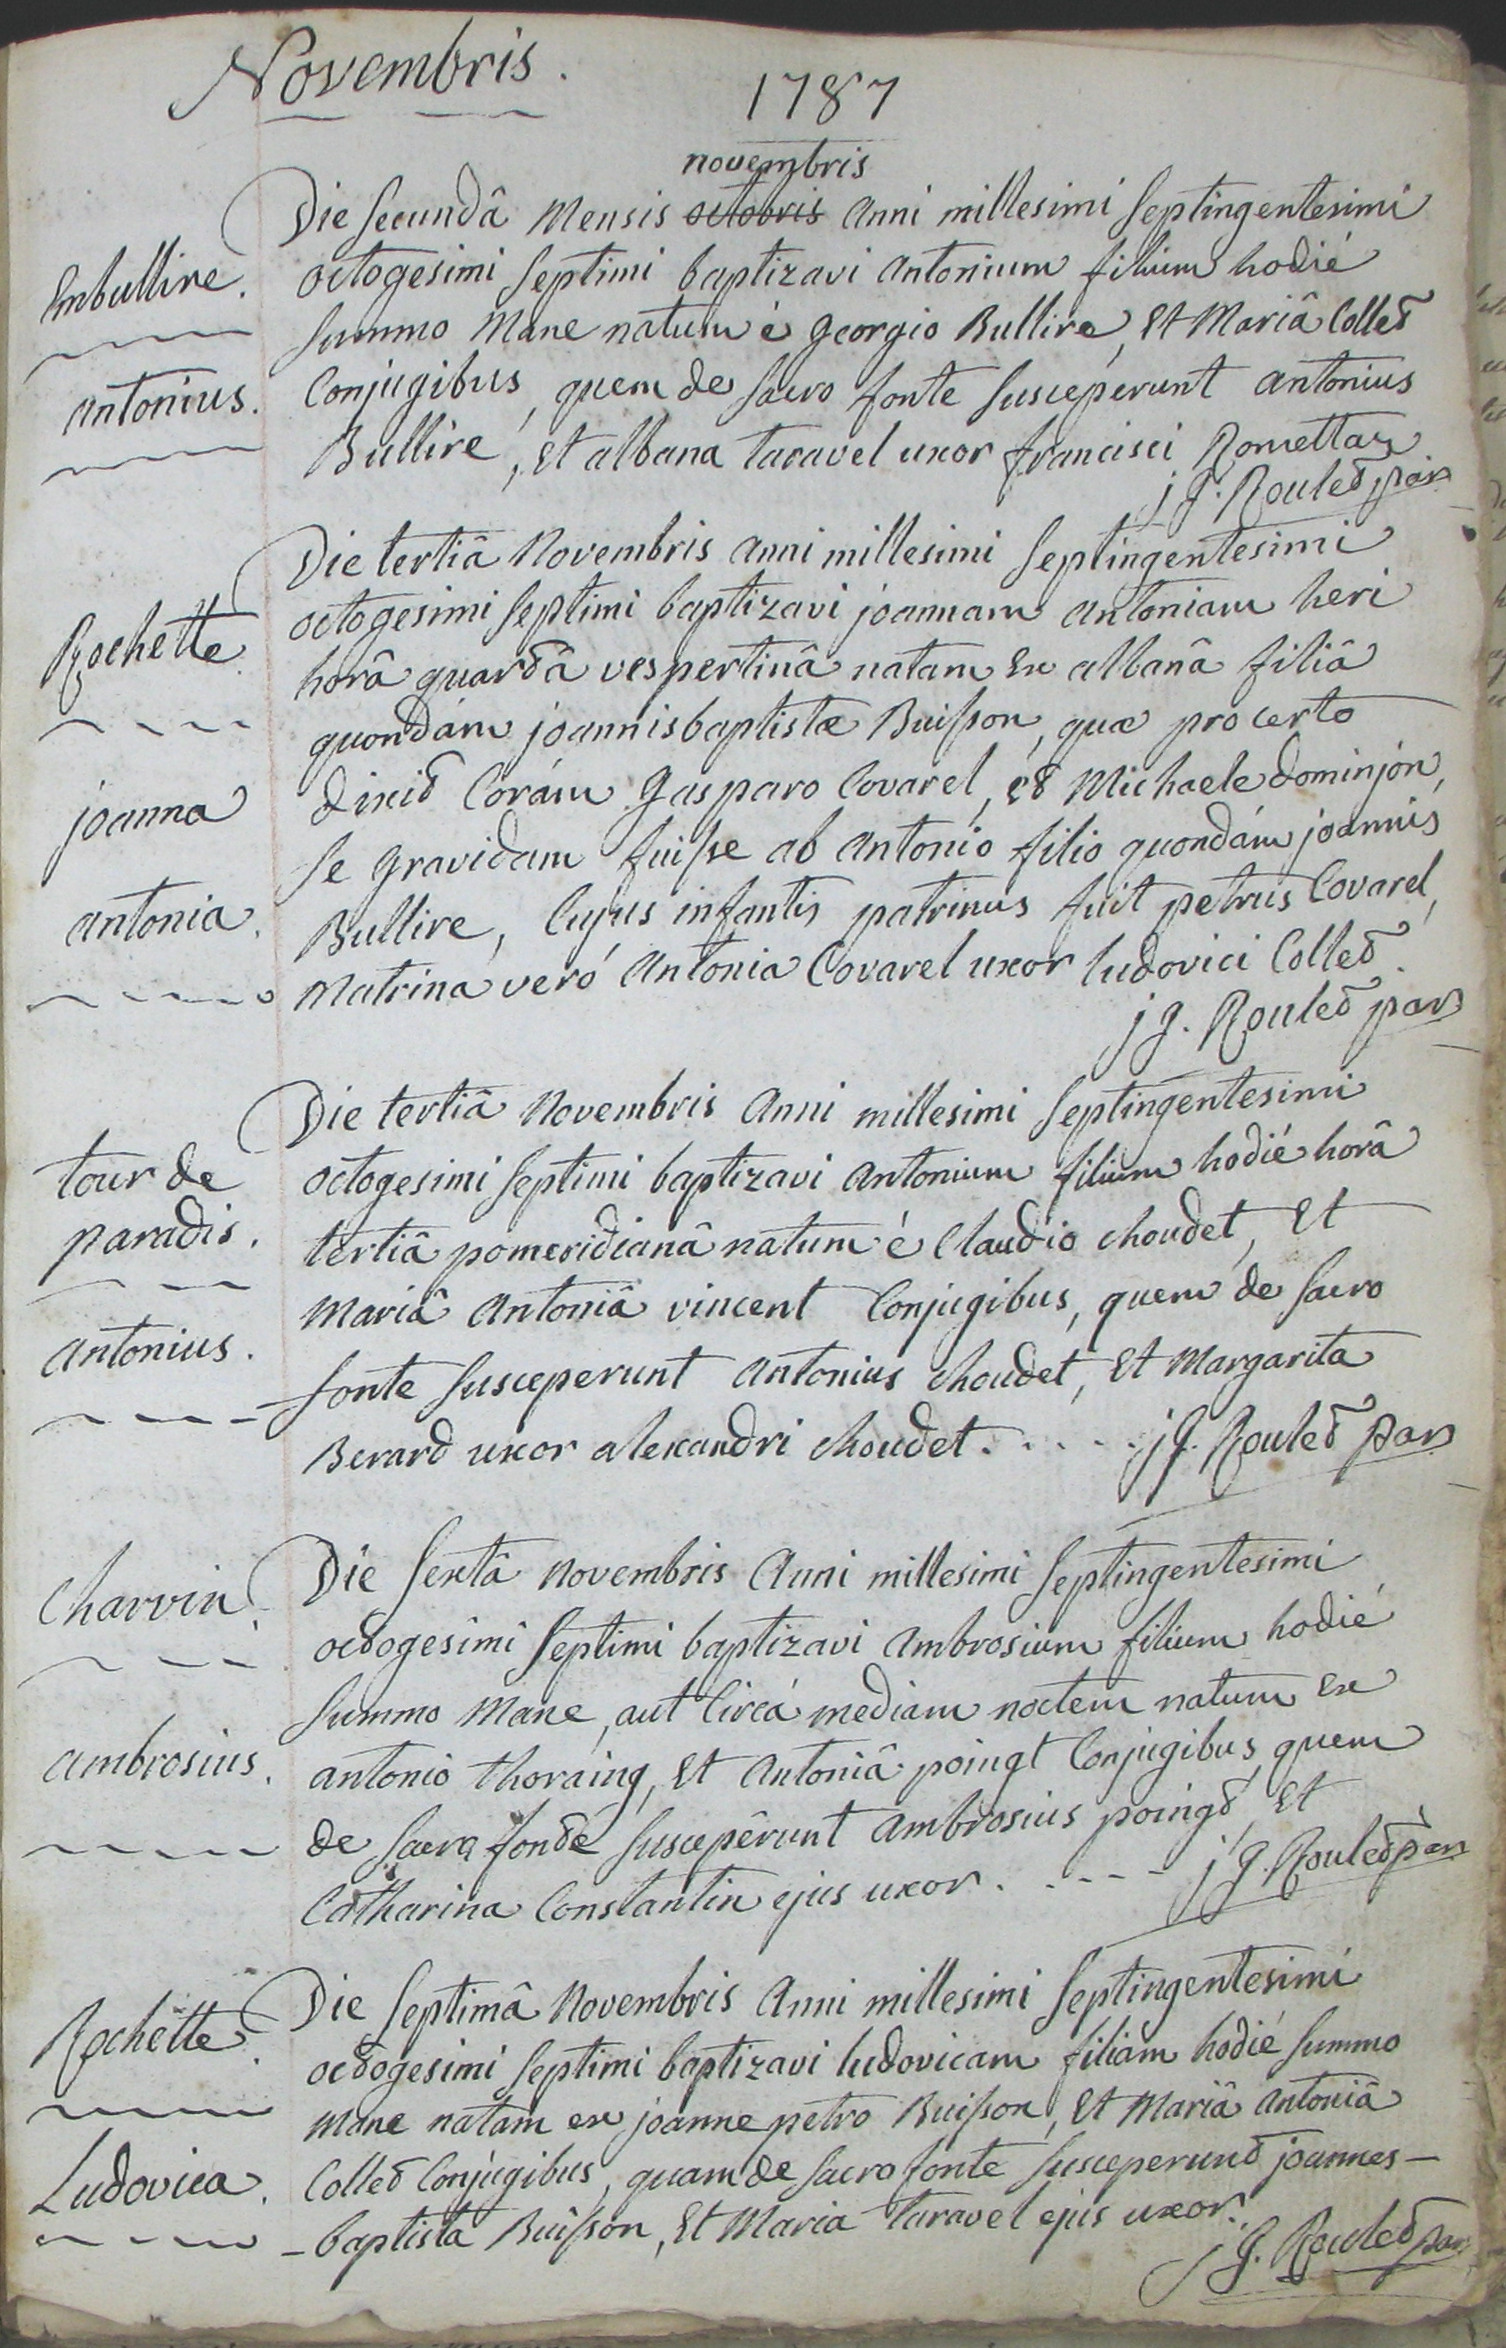 Novembris.
1787
novembris
Die secundâ Mensis octobris Anni millesimi septingentesimi
Embullire.
octogesimi septimi baptizavi Antonium filium hodié
summo Mane natum é georgio Bullire, Et Mariâ Collet
antonius.
Conjugibus, quem de sacro fonte susceperunt antonius
Bullire, Et albana taravel uxor francisci Romettaz
j g. Roulet par
Die tertiâ Novembris Anni millesimi septingentesimi
octogesimi septimi baptizavi joannam Antoniam heri
Rochette
horâ quartâ vespertinâ natam Ex albanâ filiâ
quondám joannisbaptistæ Buisson, quæ pro certo
dixit Corám gasparo Covarel, et Michaele dominjón,
joanna
se gravidam fuisse ab Antonio filio quondám joannis
Bullire, Cujus infantis patrinus fuit petrus Covarel,
antonia.
Matrina veró Antonia Covarel uxor ludovici Collet.
j g. Roulet par
Die tertiâ Novembris Anni millesimi septingentesimi
tour de
octogesimi septimi baptizavi Antonium filium hodié horâ
paradis.
tertiâ pomeridianâ natum é Claudio choudet, Et
Mariâ Antoniâ vincent Conjugibus, quem de sacro
antonius.
fonte susceperunt Antonius choudet, Et Margarita
Berard uxor alexandri choudet. . . . . . j g. Roulet par
Die sextâ Novembris Anni millesimi septingentesimi
Charvin.
octogesimi septimi baptizavi Ambrosium filium hodié
summo Mane, aut Circá mediam noctem natum Ex
ambrosius.
antonio thoraing, Et Antoniâ poingt Conjugibus, quem
de sacra fonte susceperunt Ambrosius poingt, Et
Catharina Constantin ejus uxor. . - - - - j g. Roulet par
Die septimâ Novembris Anni millesimi septingentesimi
Rochette.
octogesimi septimi baptizavi ludovicam filiam hodié summo
Mane natam ex joanne petro Buisson, Et Mariâ Antoniâ
Ludovica.
Collet Conjugibus, quam de sacro fonte susceperunt joannes-
-baptista Buisson, Et Maria taravel ejus uxor.
j g. Roulet par